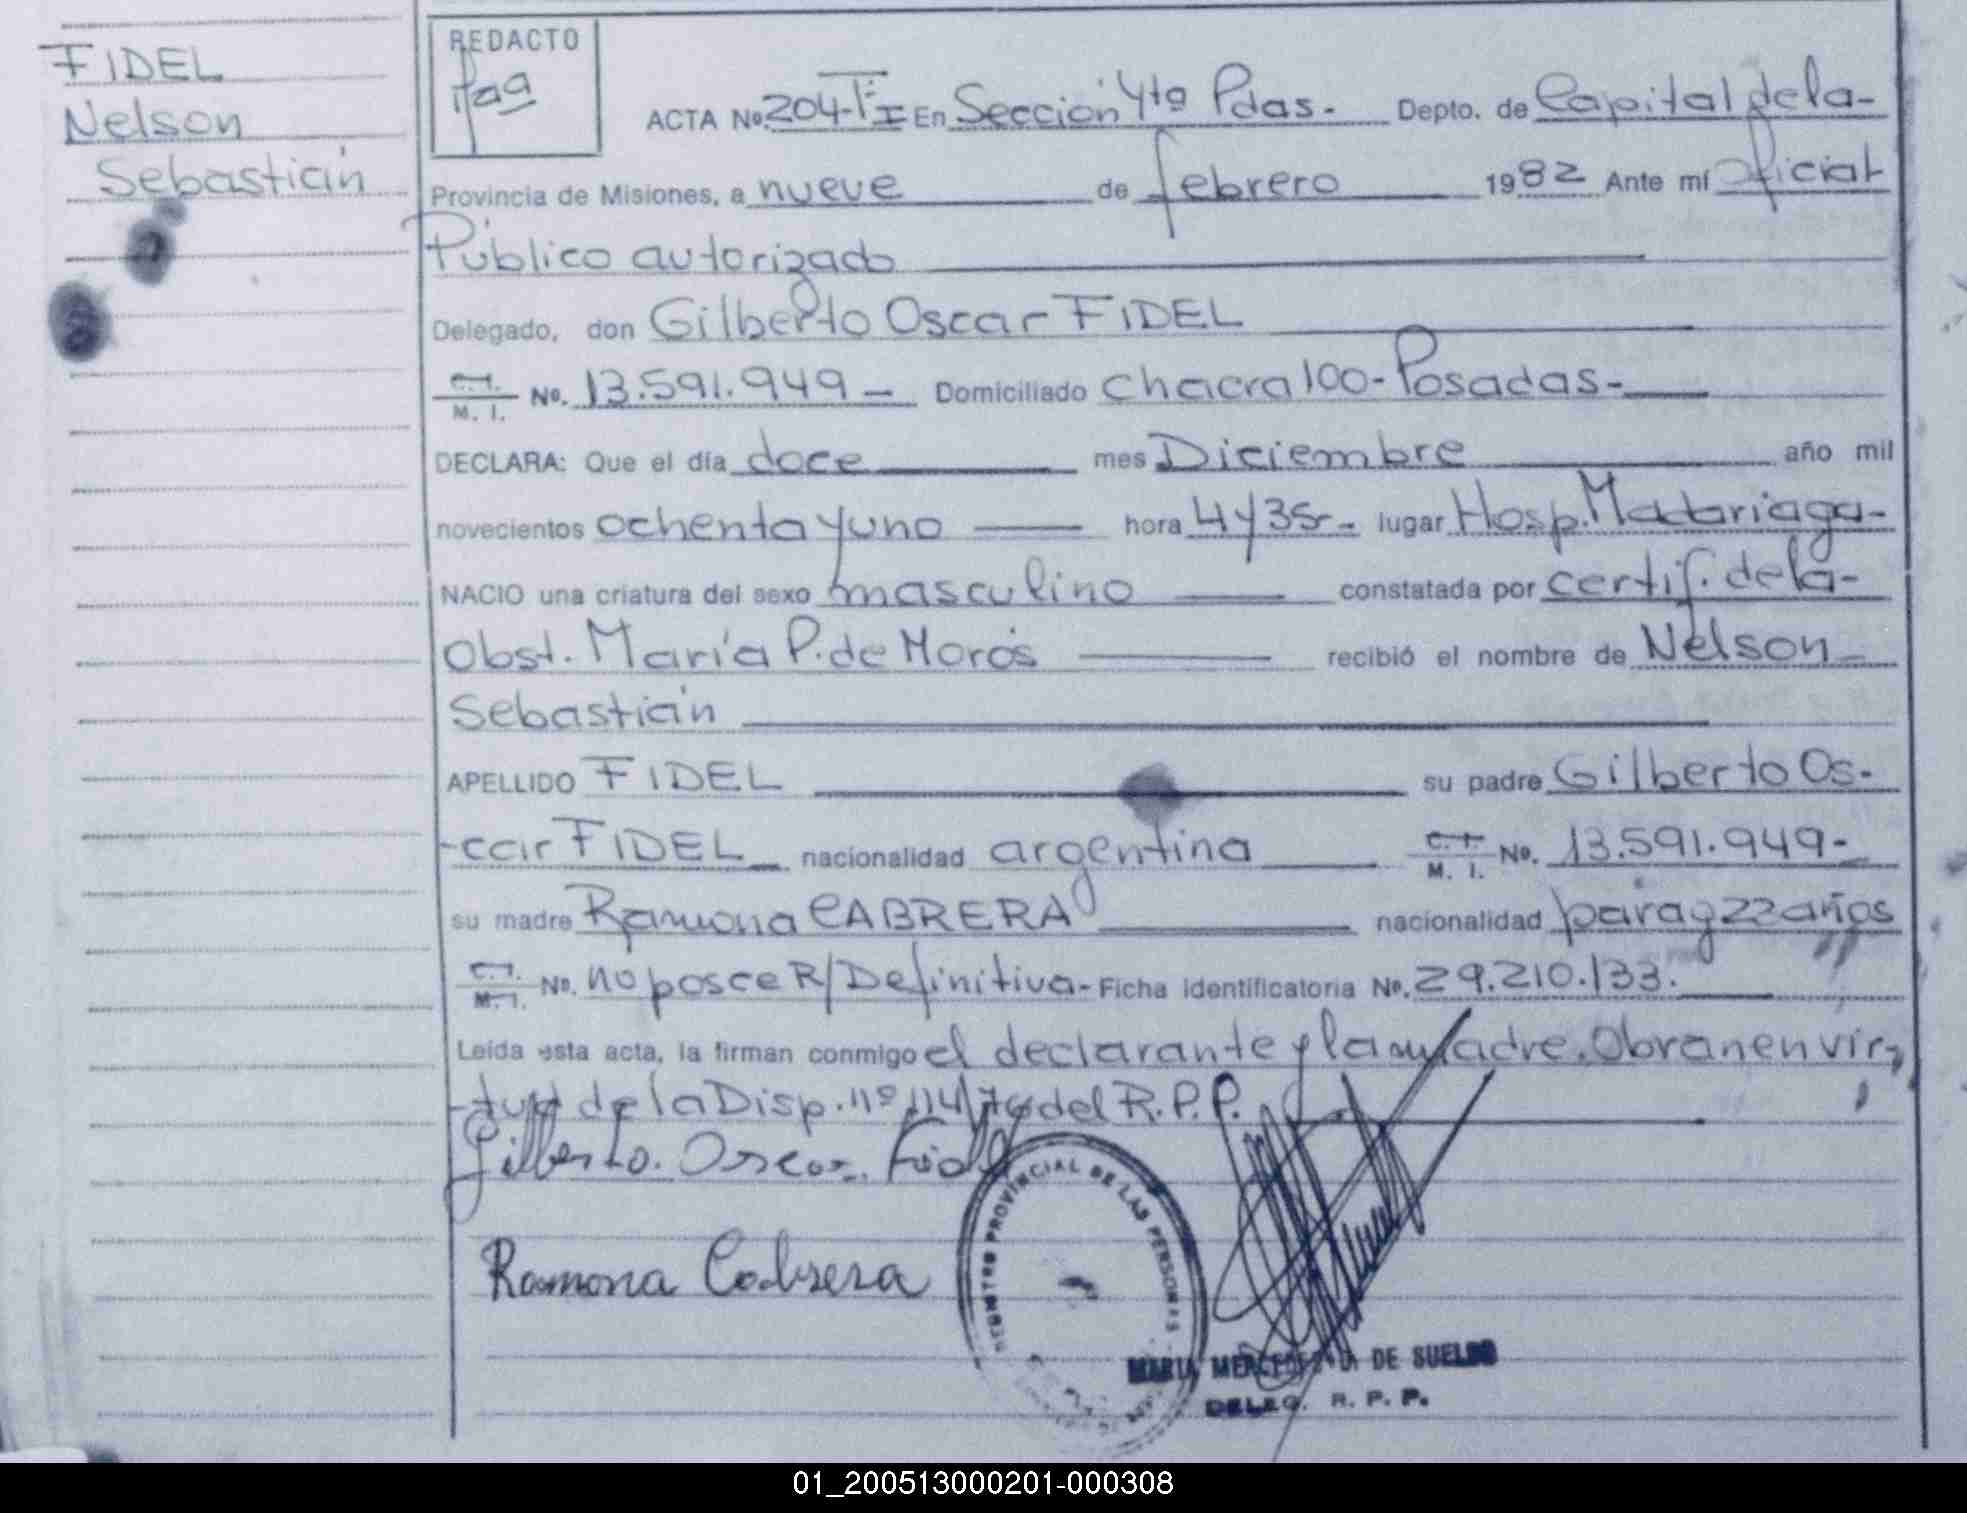 FIDEL
Nelson
Sebastián
REDACTO
ACTA No. 204-TºI En Sección 4ta Pdas.- Depto. de Capital de la-
Provincia de Misiones, a nueve de febrero 1982 Ante mí Oficial
Público autorizado
Delegado, don Gilberto Oscar FIDEL
C.I. M. I. No. 13.591.949 - Domiciliado chacra 100-Posadas-
DECLARA: Que el día doce mes Diciembre año mil
novecientos ochenta y uno hora 4 y 35- lugar Hosp. Madariaga-
NACIO una criatura del sexo masculino constatada por certif. de la-
Obst. María P. de Morós recibió el nombre de Nelson
Sebastián
APELLIDO FIDEL su padre Gilberto Os-
-car FIDEL nacionalidad argentina C.I. M. I. No. 13.591.949-
su madre Ramona CABRERA nacionalidad parag 22 años
C.I. M.I. No. no posee R/Definitiva- Ficha identificatoria No. 29.210.133.
Leída esta acta, la firman conmigo el declarante y la madre. Obran en vir-
-tud de la Disp. nº 114/76 del R.P.P.
Gilberto Oscar Fidel
Ramona Cabrera
REGISTRO PROVINCIAL DE LAS PERSONAS
MARIA MERCEDES DE SUELDO
DELEG. R. P. P.
01_200513000201-000308